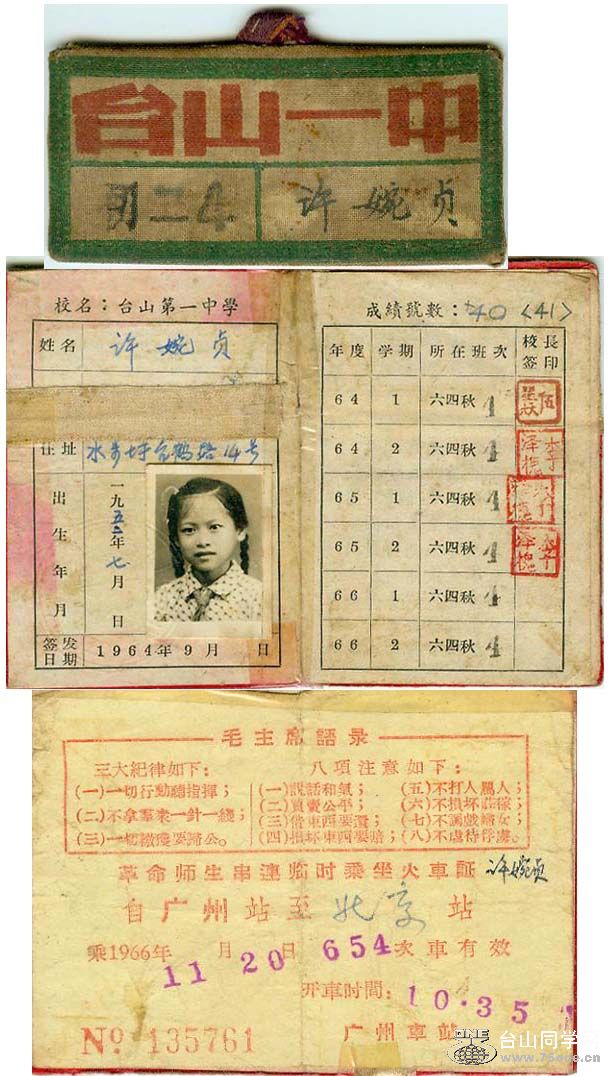 台山一中
初二4 许婉贞
校名：台山第一中學
姓名 许婉贞
住址 水步坪仓鹤路14号
出生年月 一九五二年七月 日
签发日期 1964年9月 日
成绩號數：40〈41〉
年度 学期 所在班次 校長签印
64 1 六四秋4
64 2 六四秋4
65 1 六四秋4
65 2 六四秋4
66 1 六四秋4
66 2 六四秋4
毛主席語录
三大紀律如下：
(一)一切行动聽指揮；
(二)不拿羣衆一針一綫；
(三)一切缴獲要歸公。
八項注意如下：
(一)說話和氣； (五)不打人罵人；
(二)買賣公平； (六)不損坏莊稼；
(三)借東西要還； (七)不調戲婦女；
(四)損坏東西要賠； (八)不虐待俘虜。
革命师生串連临时乘坐火車証 许婉贞
自广州站至北京站
乘1966年 11月20日 654次車有效
开車时間：10·35
№ 135761 广州車站
ONE 台山同学
www.75one.cn